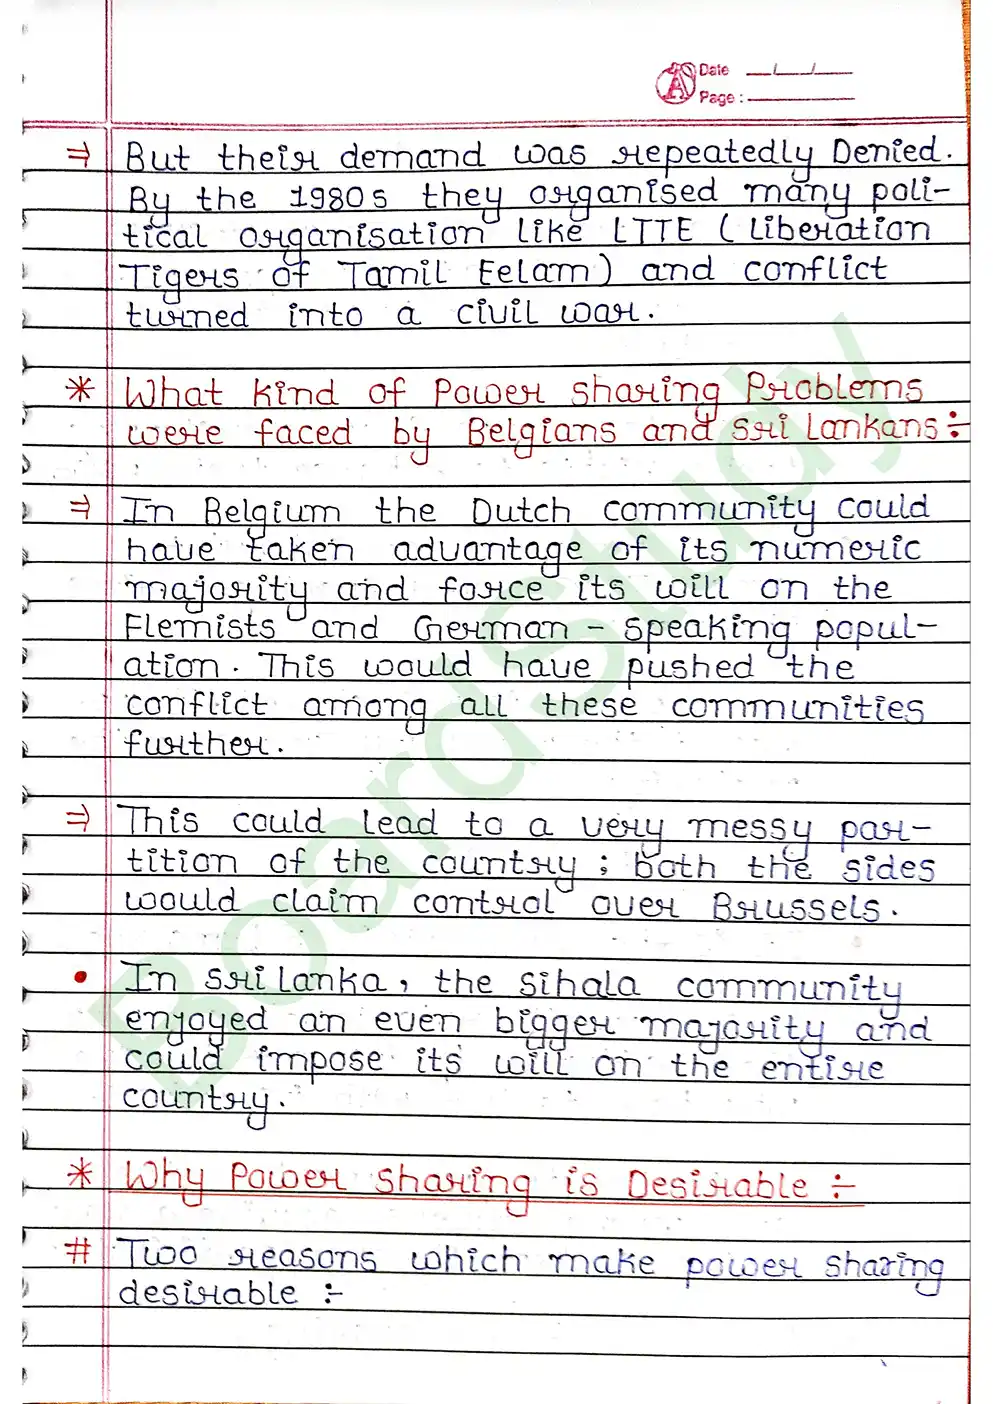 Date __/__/__
Page : ______
⇒ But their demand was repeatedly Denied.
By the 1980s they organised many poli-
tical organisation like LTTE (Liberation
Tigers of Tamil Eelam) and conflict
turned into a civil war.
* What kind of Power sharing Problems
were faced by Belgians and sri Lankans :-
⇒ In Belgium the Dutch community could
have taken advantage of its numeric
majority and force its will on the
Flemists and German - speaking popul-
ation. This would have pushed the
conflict among all these communities
further.
⇒ This could lead to a very messy par-
tition of the country ; both the sides
would claim control over Brussels.
• In sri Lanka, the sihala community
enjoyed an even bigger majority and
could impose its will on the entire
country.
* Why Power sharing is Desirable :-
# Two reasons which make power sharing
desirable :-
BoardStudy